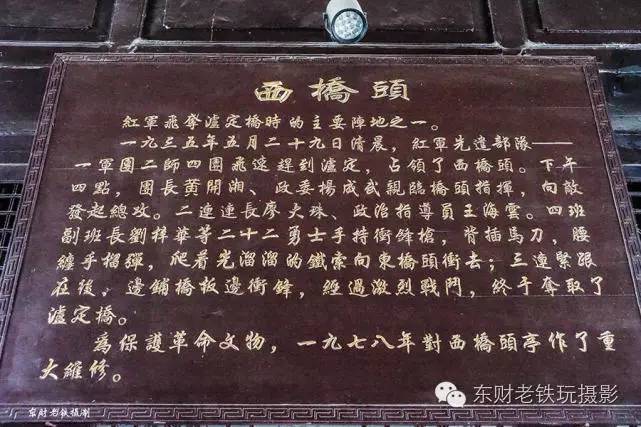 西橋頭
紅軍飛奪瀘定橋時的主要陣地之一。
一九三五年五月二十九日清晨，紅軍先遣部隊——
一軍團二師四團飛速趕到瀘定，占領了西橋頭。下午
四點，團長黄開湘、政委楊成武親臨橋頭指揮，向敵
發起總攻。二連連長廖大珠、政治指導員王海雲。四班
副班長劉梓華等二十二勇士手持衝鋒槍，背插馬刀，腰
纏手榴彈，爬着光溜溜的鐵索向東橋頭衝去；三連緊跟
在後，邊鋪橋板邊衝鋒，經過激烈戰鬥，終于奪取了
瀘定橋。
為保護革命文物，一九七八年對西橋頭亭作了重
大維修。
东财老铁玩摄影
东财老铁摄制